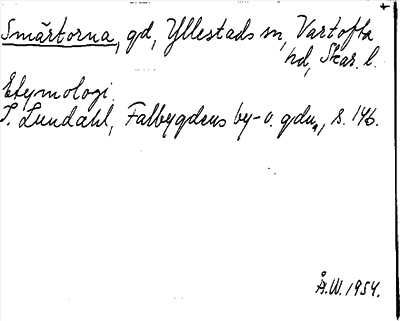 Smärtorna, gd, Yllestads sn, Vartofta
hd, Skar. l.
Etymologi.
I. Lundahl, Falbygdens by- o. gdn, s. 146.
Å.W. 1954.